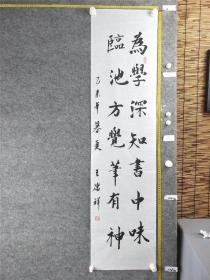 為學深知書中味
臨池方覺筆有神
己未年暮夏 王德祥